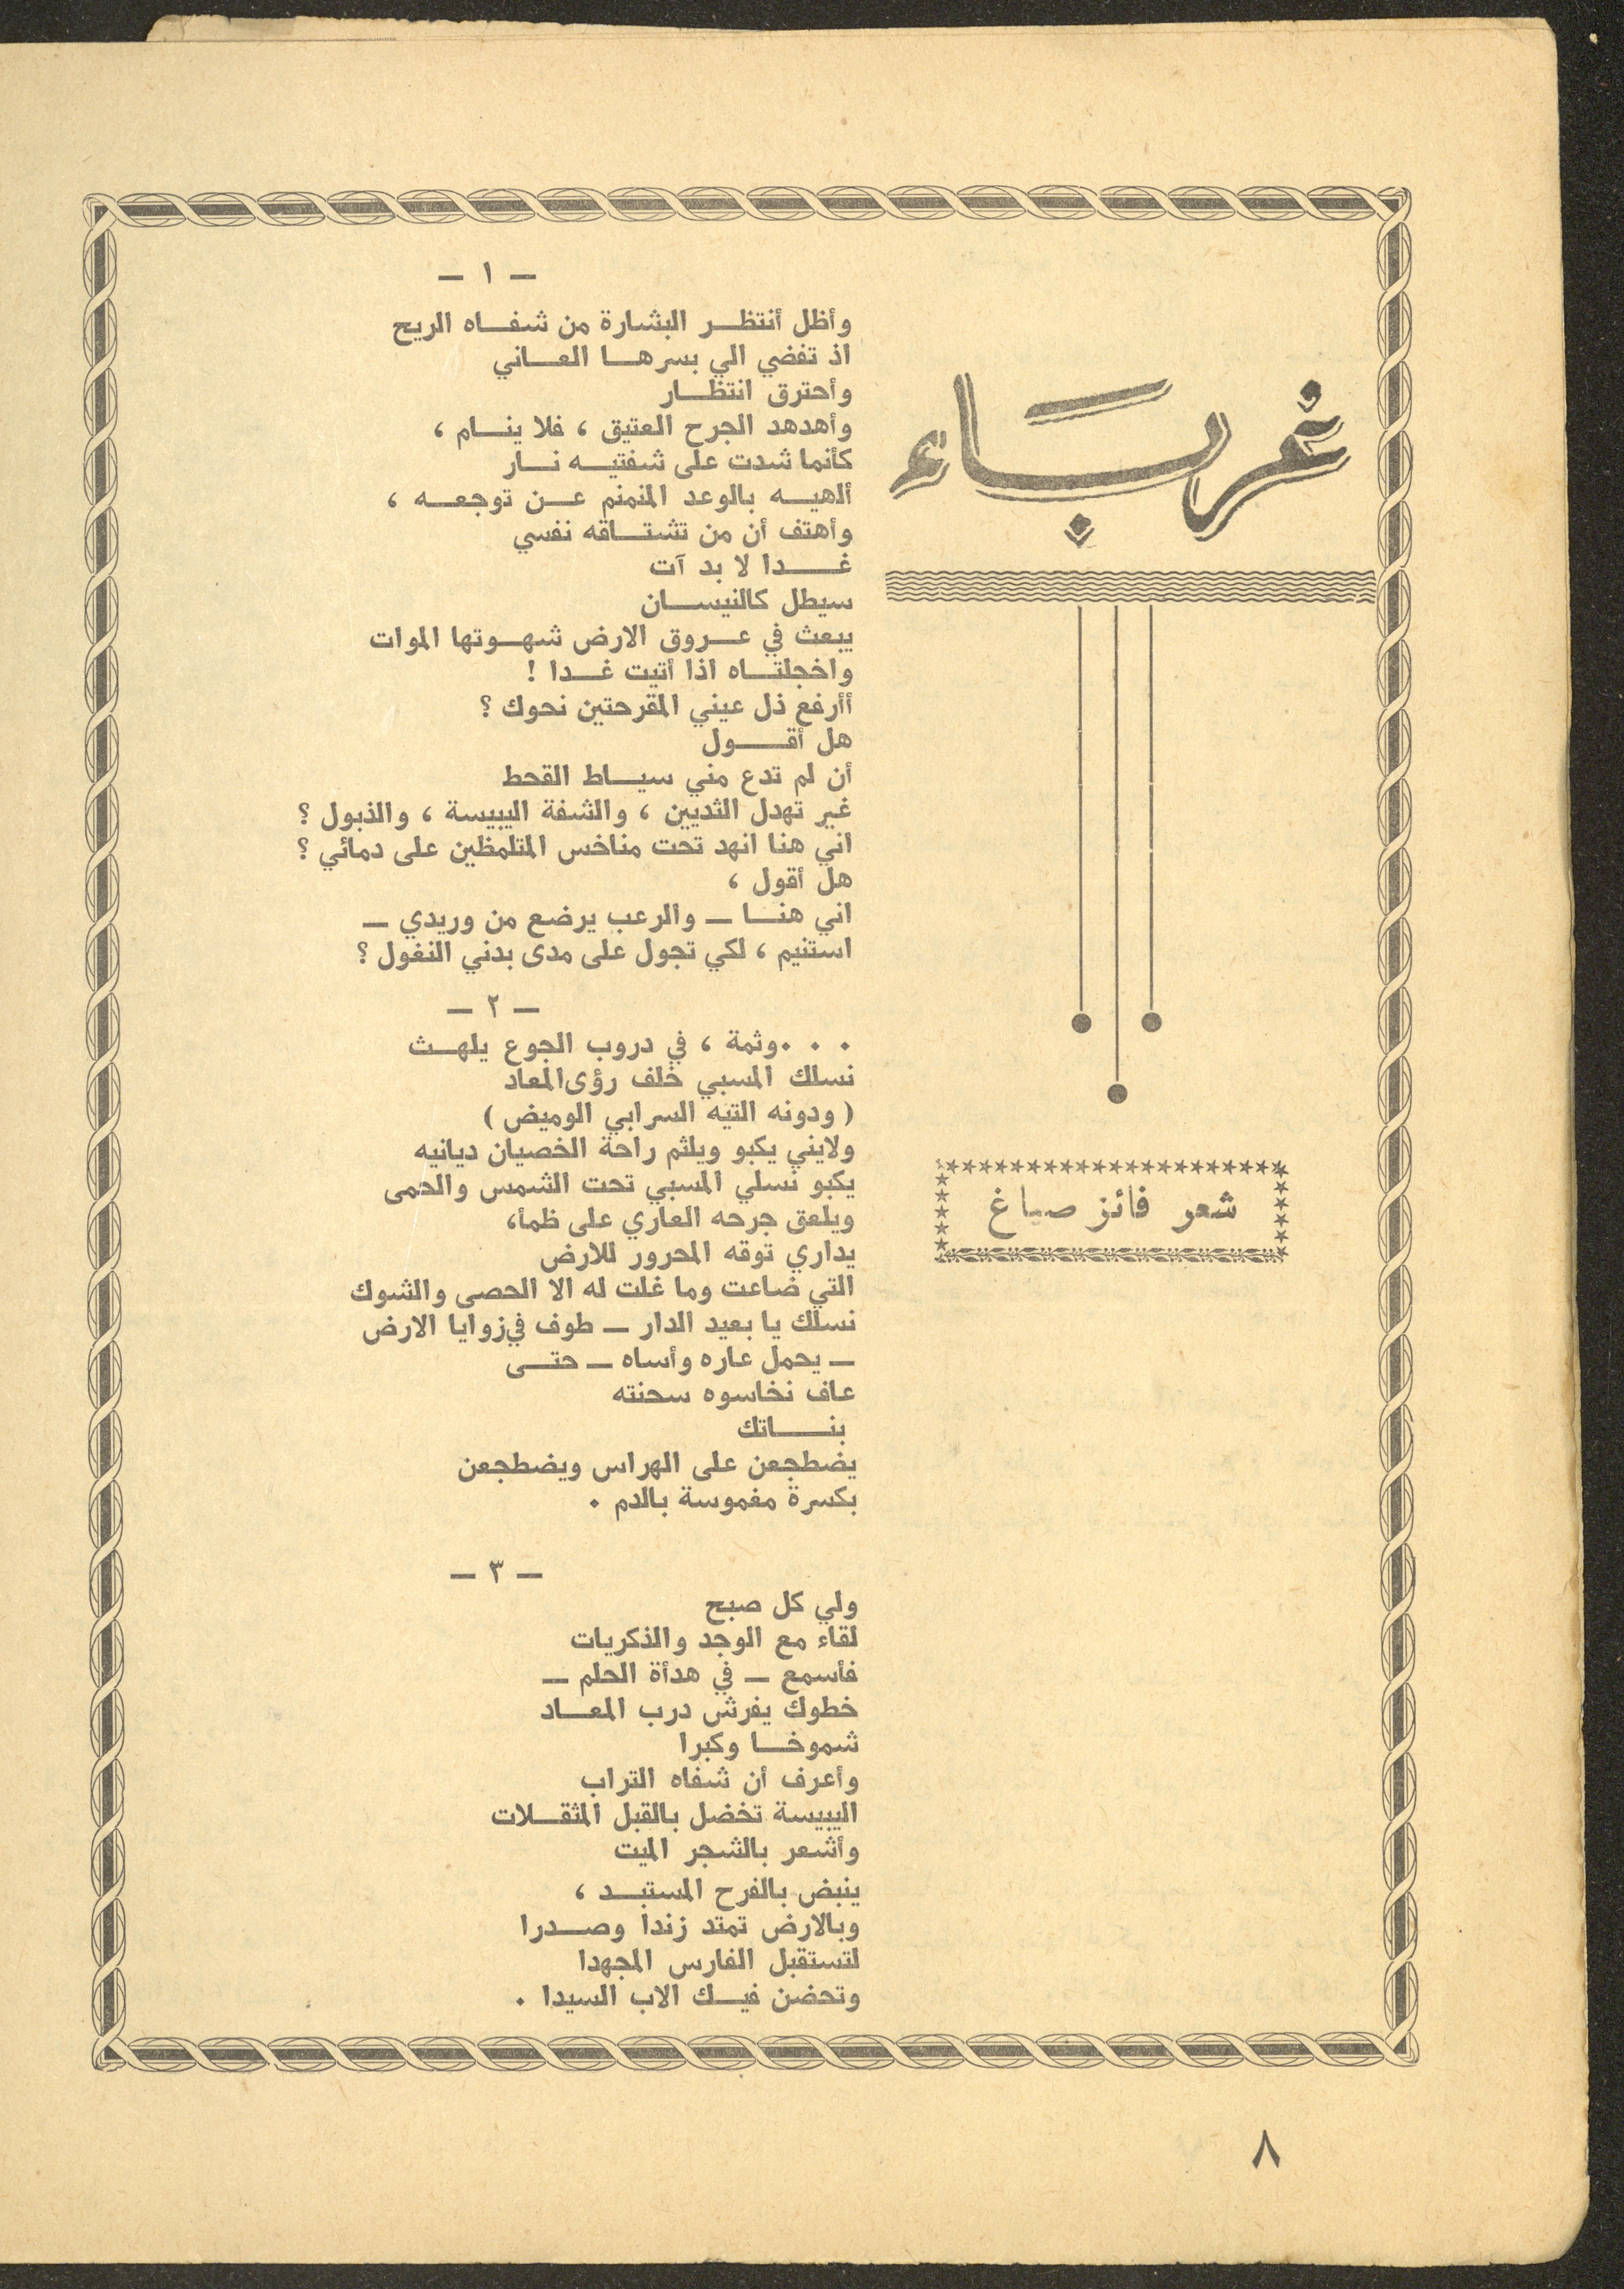 غرباء
شعر فائز صياغ
— ١ —
وأظل أنتظر البشارة من شفاه الريح
اذ تفضي الي بسرها العاني
وأحترق انتظار
وأهدهد الجرح العتيق ، فلا ينام ،
كأنما شدت على شفتيه نار
ألهيه بالوعد المنمنم عن توجعه ،
وأهتف أن من تشتاقه نفسي
غدا لا بد آت
سيطل كالنيسان
يبعث في عروق الارض شهوتها الموات
واخجلتاه اذا أتيت غدا !
أأرفع ذل عيني المقرحتين نحوك ؟
هل أقول
أن لم تدع مني سياط القحط
غير تهدل الثديين ، والشفة اليبيسة ، والذبول ؟
اني هنا انهد تحت مناخس المتلمظين على دمائي ؟
هل أقول ،
اني هنا — والرعب يرضع من وريدي —
استنيم ، لكي تجول على مدى بدني النغول ؟
— ٢ —
. . .وثمة ، في دروب الجوع يلهث
نسلك المسبي خلف رؤى المعاد
( ودونه التيه السرابي الوميض )
ولايني يكبو ويلثم راحة الخصيان ديانيه
يكبو نسلي المسبي تحت الشمس والحمى
ويلعق جرحه العاري على ظمأ،
يداري توقه المحرور للارض
التي ضاعت وما غلت له الا الحصى والشوك
نسلك يا بعيد الدار — طوف في زوايا الارض
— يحمل عاره وأساه — حتى
عاف نخاسوه سحنته
بناتك
يضطجعن على الهراس ويضطجعن
بكسرة مغموسة بالدم .
— ٣ —
ولي كل صبح
لقاء مع الوجد والذكريات
فأسمع — في هدأة الحلم —
خطوك يفرش درب المعاد
شموخا وكبرا
وأعرف أن شفاه التراب
اليبيسة تخضل بالقبل المثقلات
وأشعر بالشجر الميت
ينبض بالفرح المستبد ،
وبالارض تمتد زندا وصدرا
لتستقبل الفارس المجهدا
وتحضن فيك الاب السيدا .
٨